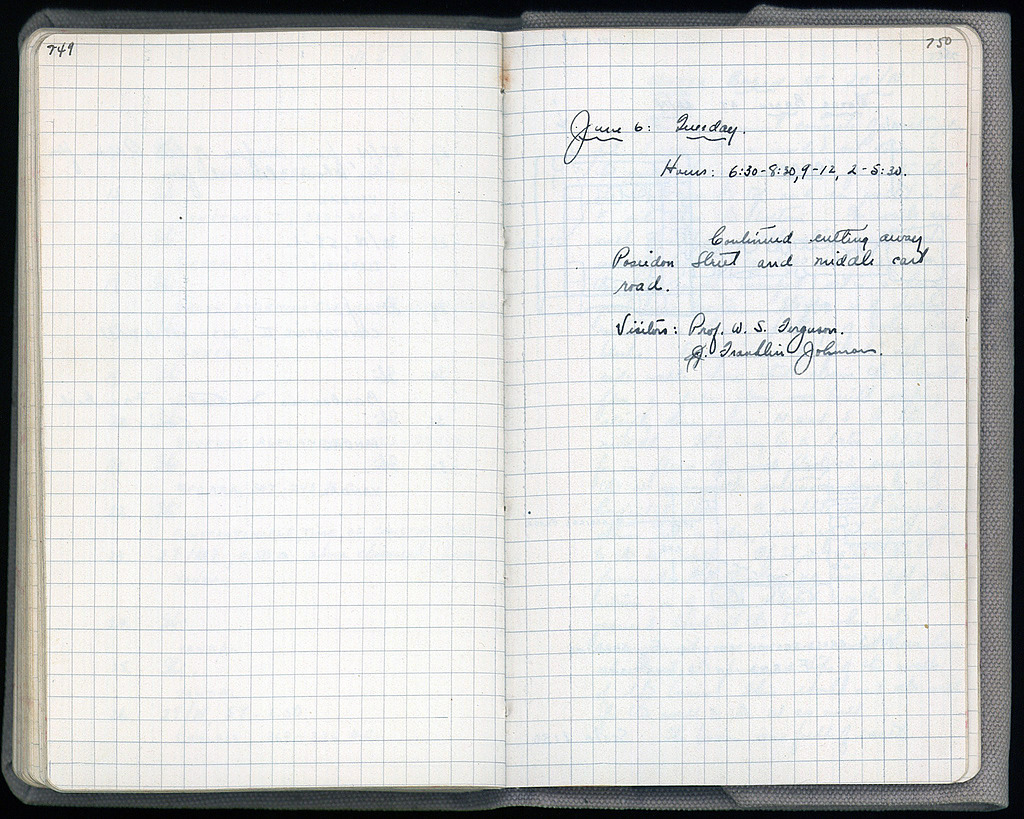 749
750
June 6: Tuesday.
Hours: 6:30-8:30, 9-12, 2-5:30.
Continued cutting away
Poseidon Street and middle cart
road.
Visitors: Prof. W. S. Ferguson.
J. Franklin Johnson.